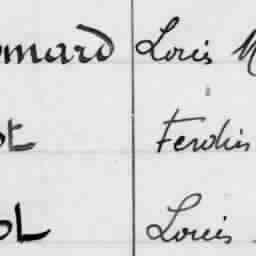 omard Louis M
ot Ferdin
oL Louis